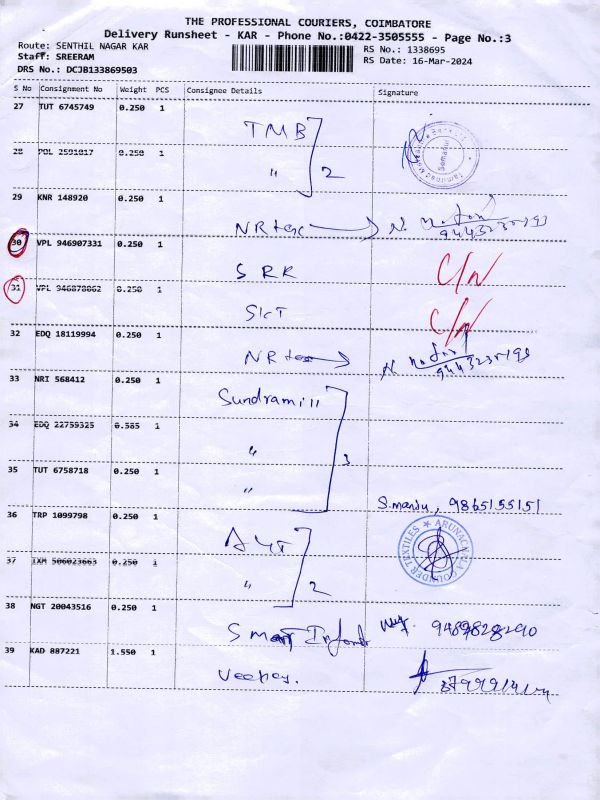 THE PROFESSIONAL COURIERS, COIMBATORE
Delivery Runsheet - KAR - Phone No.:0422-3505555 - Page No.:3
Route: SENTHIL NAGAR KAR
RS No.: 1338695
Staff: SREERAM
RS Date: 16-Mar-2024
DRS No.: DCJB133869503
S No Consignment No Weight PCS Consignee Details Signature
27 TUT 6745749 0.250 1
TMB
28 POL 2591817 0.250 1
" 2
29 KNR 148920 0.250 1
NRtex
30 VPL 946907331 0.250 1
SRK C/N
31 VPL 946878862 0.250 1
C/N
32 EDQ 18119994 0.250 1
NRtex
33 NRI 568412 0.250 1
Sundramill
34 EDQ 22759325 0.585 1
" 3
35 TUT 6758718 0.250 1
"
9865155151
36 TRP 1099798 0.250 1
ARUNACHALA GOUNDER TEXTILES
37 IXM 506023663 0.250 1
" 2
38 NGT 20043516 0.250 1
Smart
39 KAD 887221 1.550 1
Veekay.